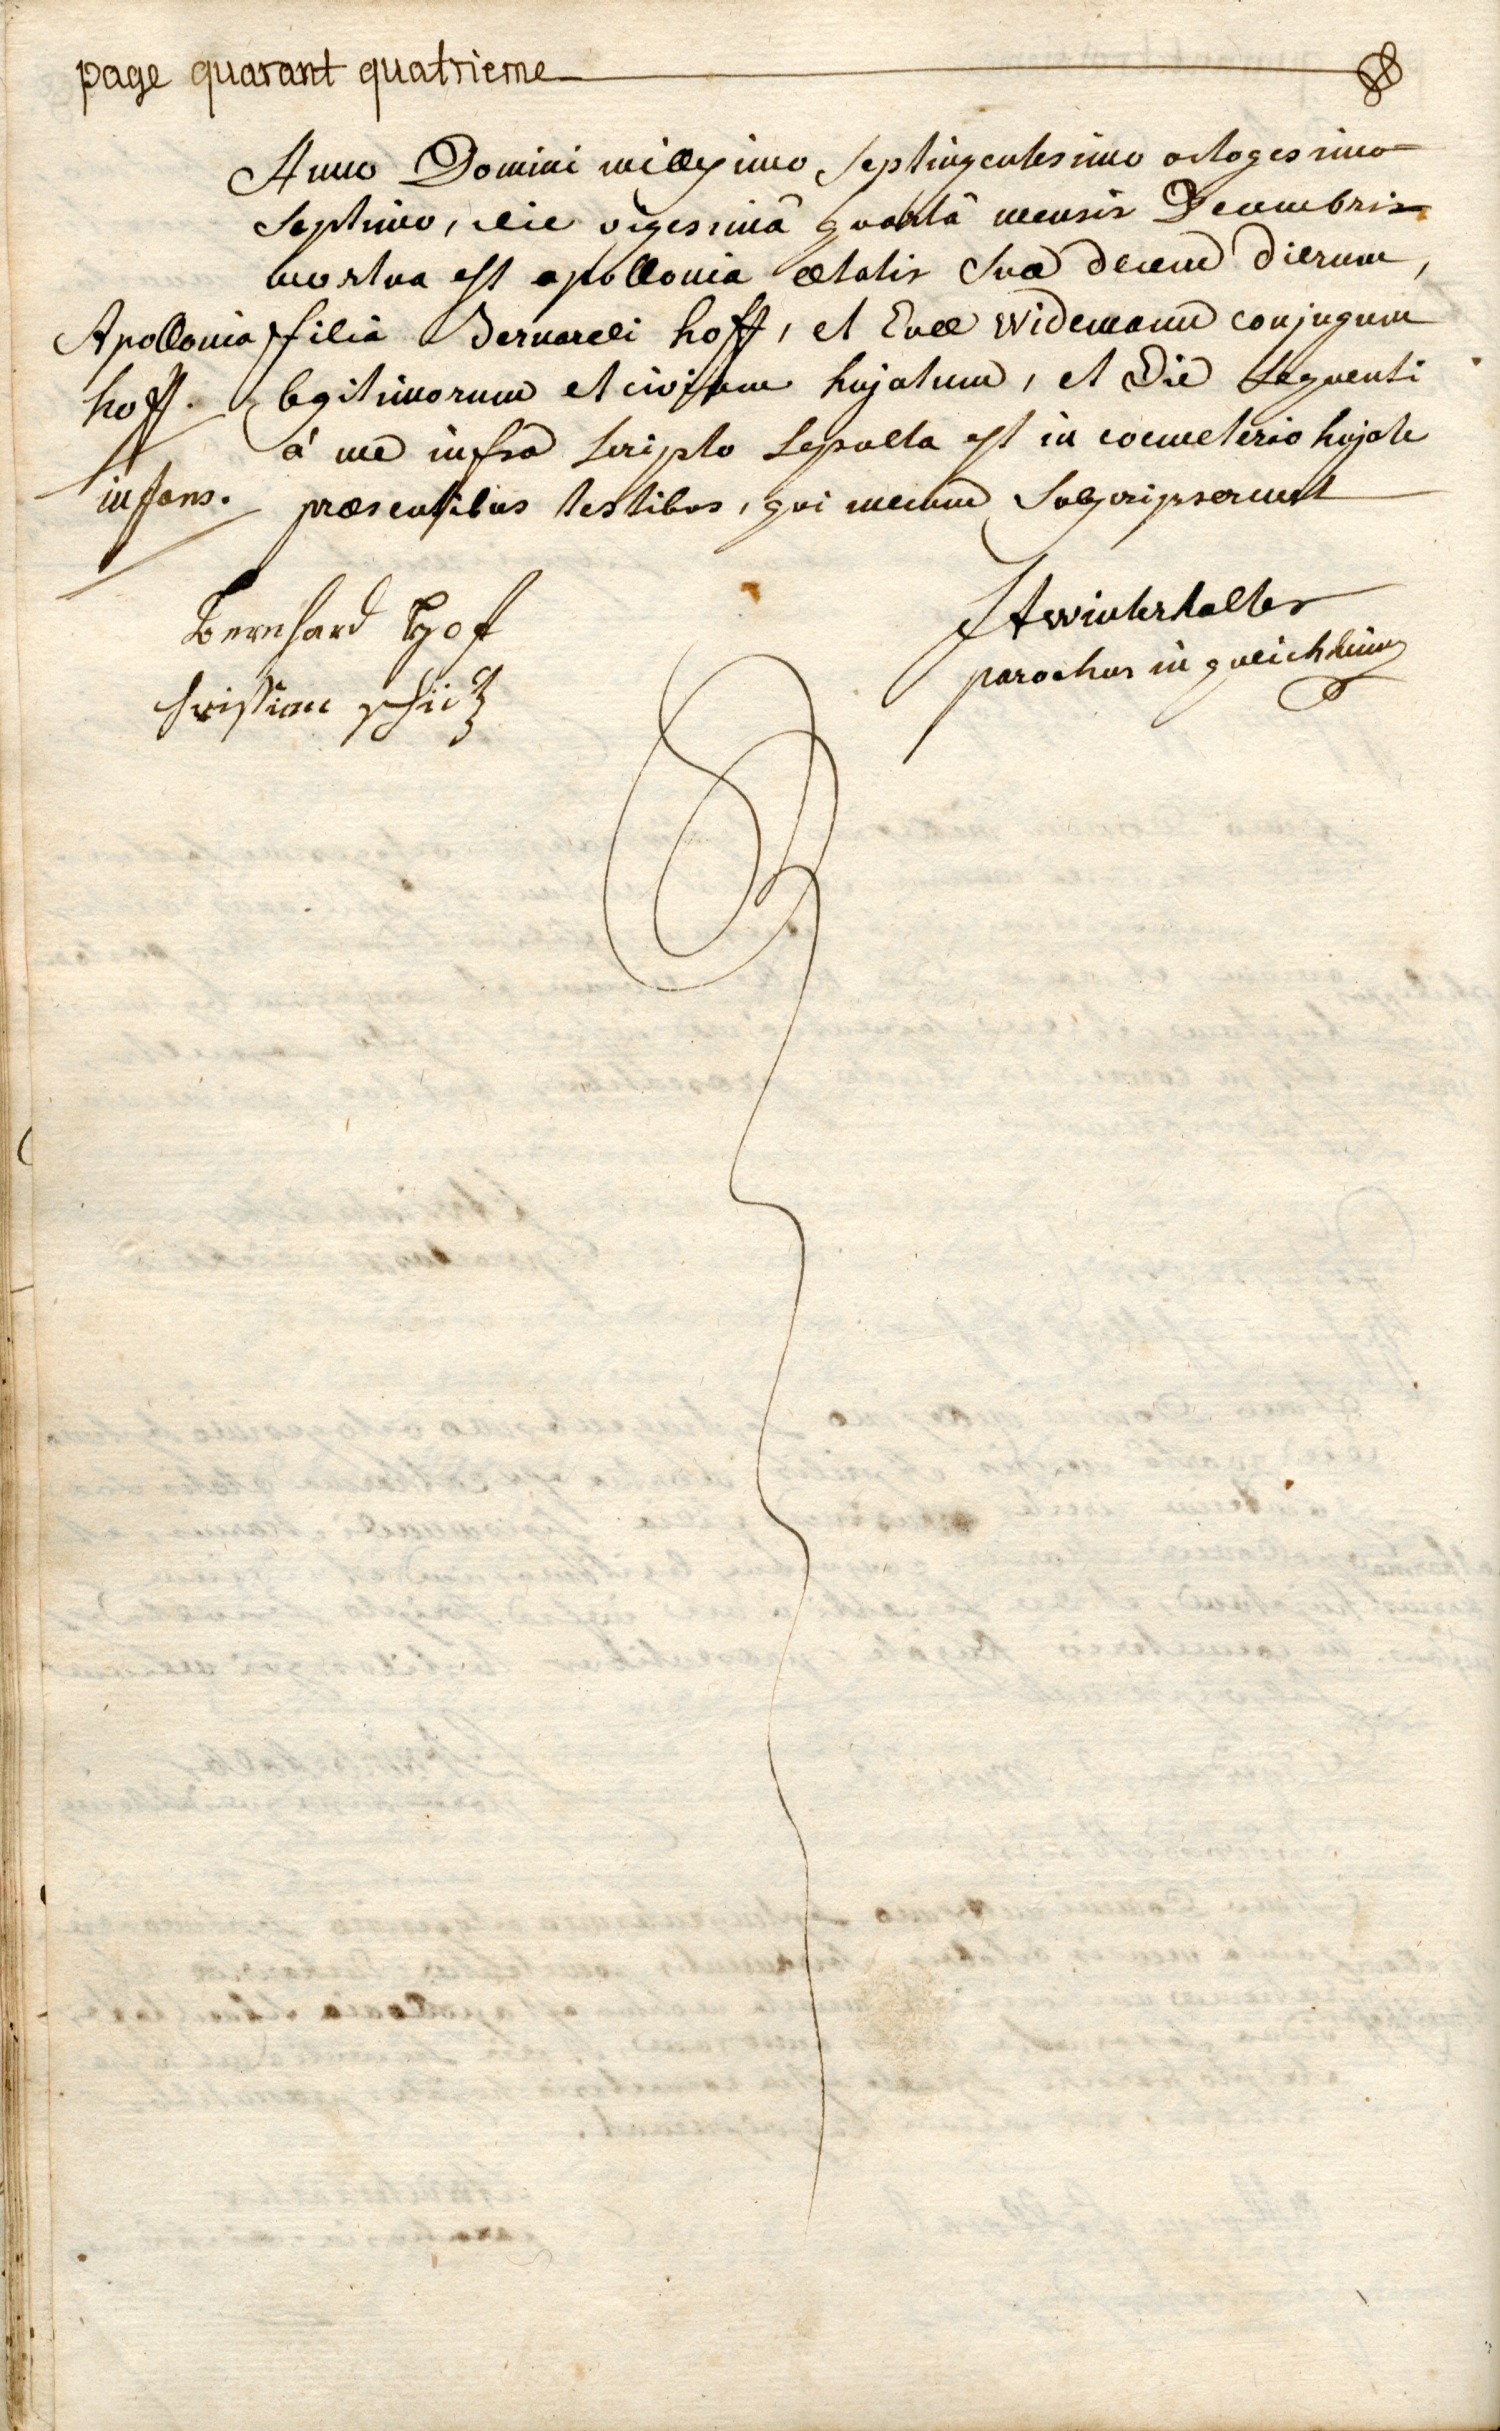 page quarant quatrieme
Anno Domini millesimo septingentesimo octogesimo
septimo, die vigesimâ quartâ mensis Decembris
mortua est apollonia ætatis suæ decem dierum,
Apollonia filia Bernardi hoff, et Evæ Widemann conjugum
hoff. legitimorum et civium hujatum, et die sequenti
à me infra scripto sepulta est in coemeterio hujate
infans. præsentibus testibus, qui mecum subscripserunt
Bernhard Hof
JA Winterhalter
parochus in
Cristian schütz